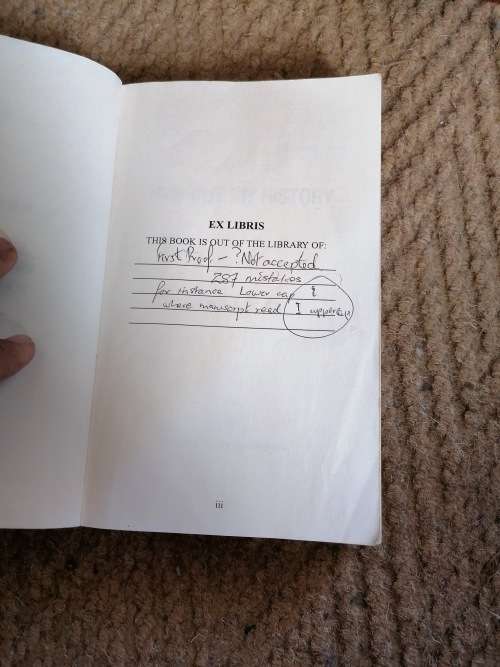 EX LIBRIS
THIS BOOK IS OUT OF THE LIBRARY OF:
First Proof - ? Not accepted
287 mistakes
for instance Lower cap i
where manuscript read I upper
iii